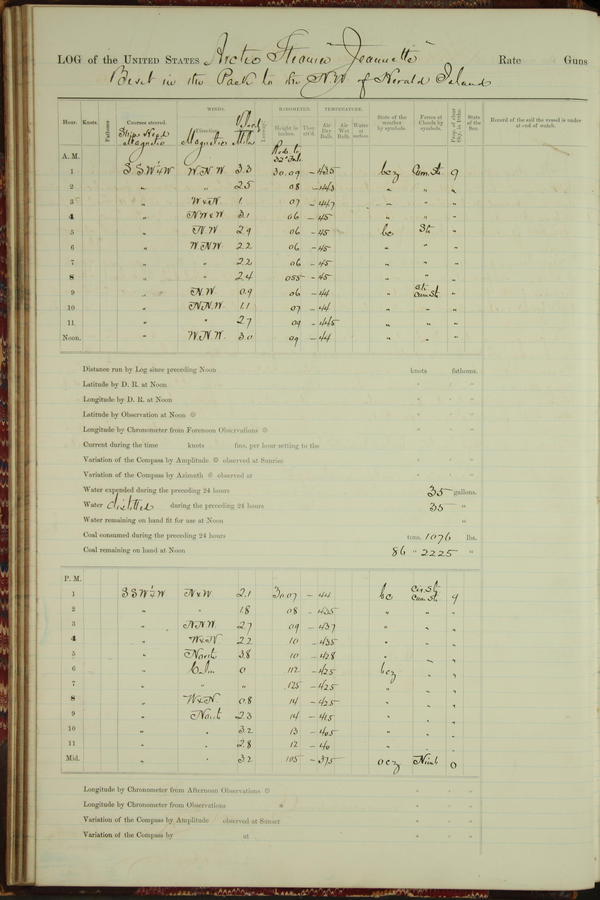 LOG of the UNITED STATES Arctic Steamer "Jeannette" Rate Guns
Beset in the Pack to the NW of Herald Island
WINDS. BAROMETER. TEMPERATURE.
Hour. Knots. Fathoms. Courses steered. Direction. Leeway. Height in inches. Ther. att'd. Air Dry Bulb. Air Wet Bulb. Water at surface. State of the weather by symbols. Forms of Clouds by symbols. Prop. of clear Sky, in 10ths. State of the Sea. Record of the sail the vessel is under at end of watch.
Ships Head Magnetic Magnetic Veloct Miles Red. to 32° Fah.
A. M.
1 SSW½W W.N.W. 3.3 30.09 -43.5 bcz Cum.St. 9
2 " " 2.5 08 -43 " " "
3 " W x N. 1. 07 -44.7 " " "
4 " NW x W 3.1 06 -45 " " "
5 " N.W 2.9 06 -45 bc St. "
6 " W.N.W 2.2 06 -45 " " "
7 " " 2.2 06 -45 " " "
8 " " 2.4 055 -45 " " "
9 " N.W. 0.9 06 -44 " St. Cum.St. "
10 " N.N.W. 1.1 07 -44 " " "
11 " " 2.7 09 -44.5 " " "
Noon. " W.N.W. 3.0 09 -44 " " "
Distance run by Log since preceding Noon knots fathoms.
Latitude by D. R. at Noon " " "
Longitude by D. R. at Noon " " "
Latitude by Observation at Noon " " "
Longitude by Chronometer from Forenoon Observations " " "
Current during the time knots fms. per hour setting to the
Variation of the Compass by Amplitude observed at Sunrise " " "
Variation of the Compass by Azimuth observed at " " "
Water expended during the preceding 24 hours 35 gallons.
Water distilled during the preceding 24 hours 35 "
Water remaining on hand fit for use at Noon "
Coal consumed during the preceding 24 hours tons. 1076 lbs.
Coal remaining on hand at Noon 86 " 2225 "
P. M.
1 SSW½W N x W 2.1 30.07 -44 bc Cir.St Cum.St. 9
2 " " 1.8 08 -43.5 " " "
3 " N.N.W. 2.7 09 -43.7 " " "
4 " W x N 2.2 10 -43.5 " " "
5 " North 3.8 10 -42.8 " " "
6 " Calm 0 112 -42.5 bcz " "
7 " " " 125 -42.5 " " "
8 " W x N. 0.8 14 -42.5 " " "
9 " North 2.3 14 -41.5 " " "
10 " " 3.2 13 -40.5 " " "
11 " " 2.8 12 -40 " " "
Mid. " " 3.2 105 -37.5 ocz Nimb 0
Longitude by Chronometer from Afternoon Observations " " "
Longitude by Chronometer from Observations " " "
Variation of the Compass by Amplitude observed at Sunset " " "
Variation of the Compass by at " " "